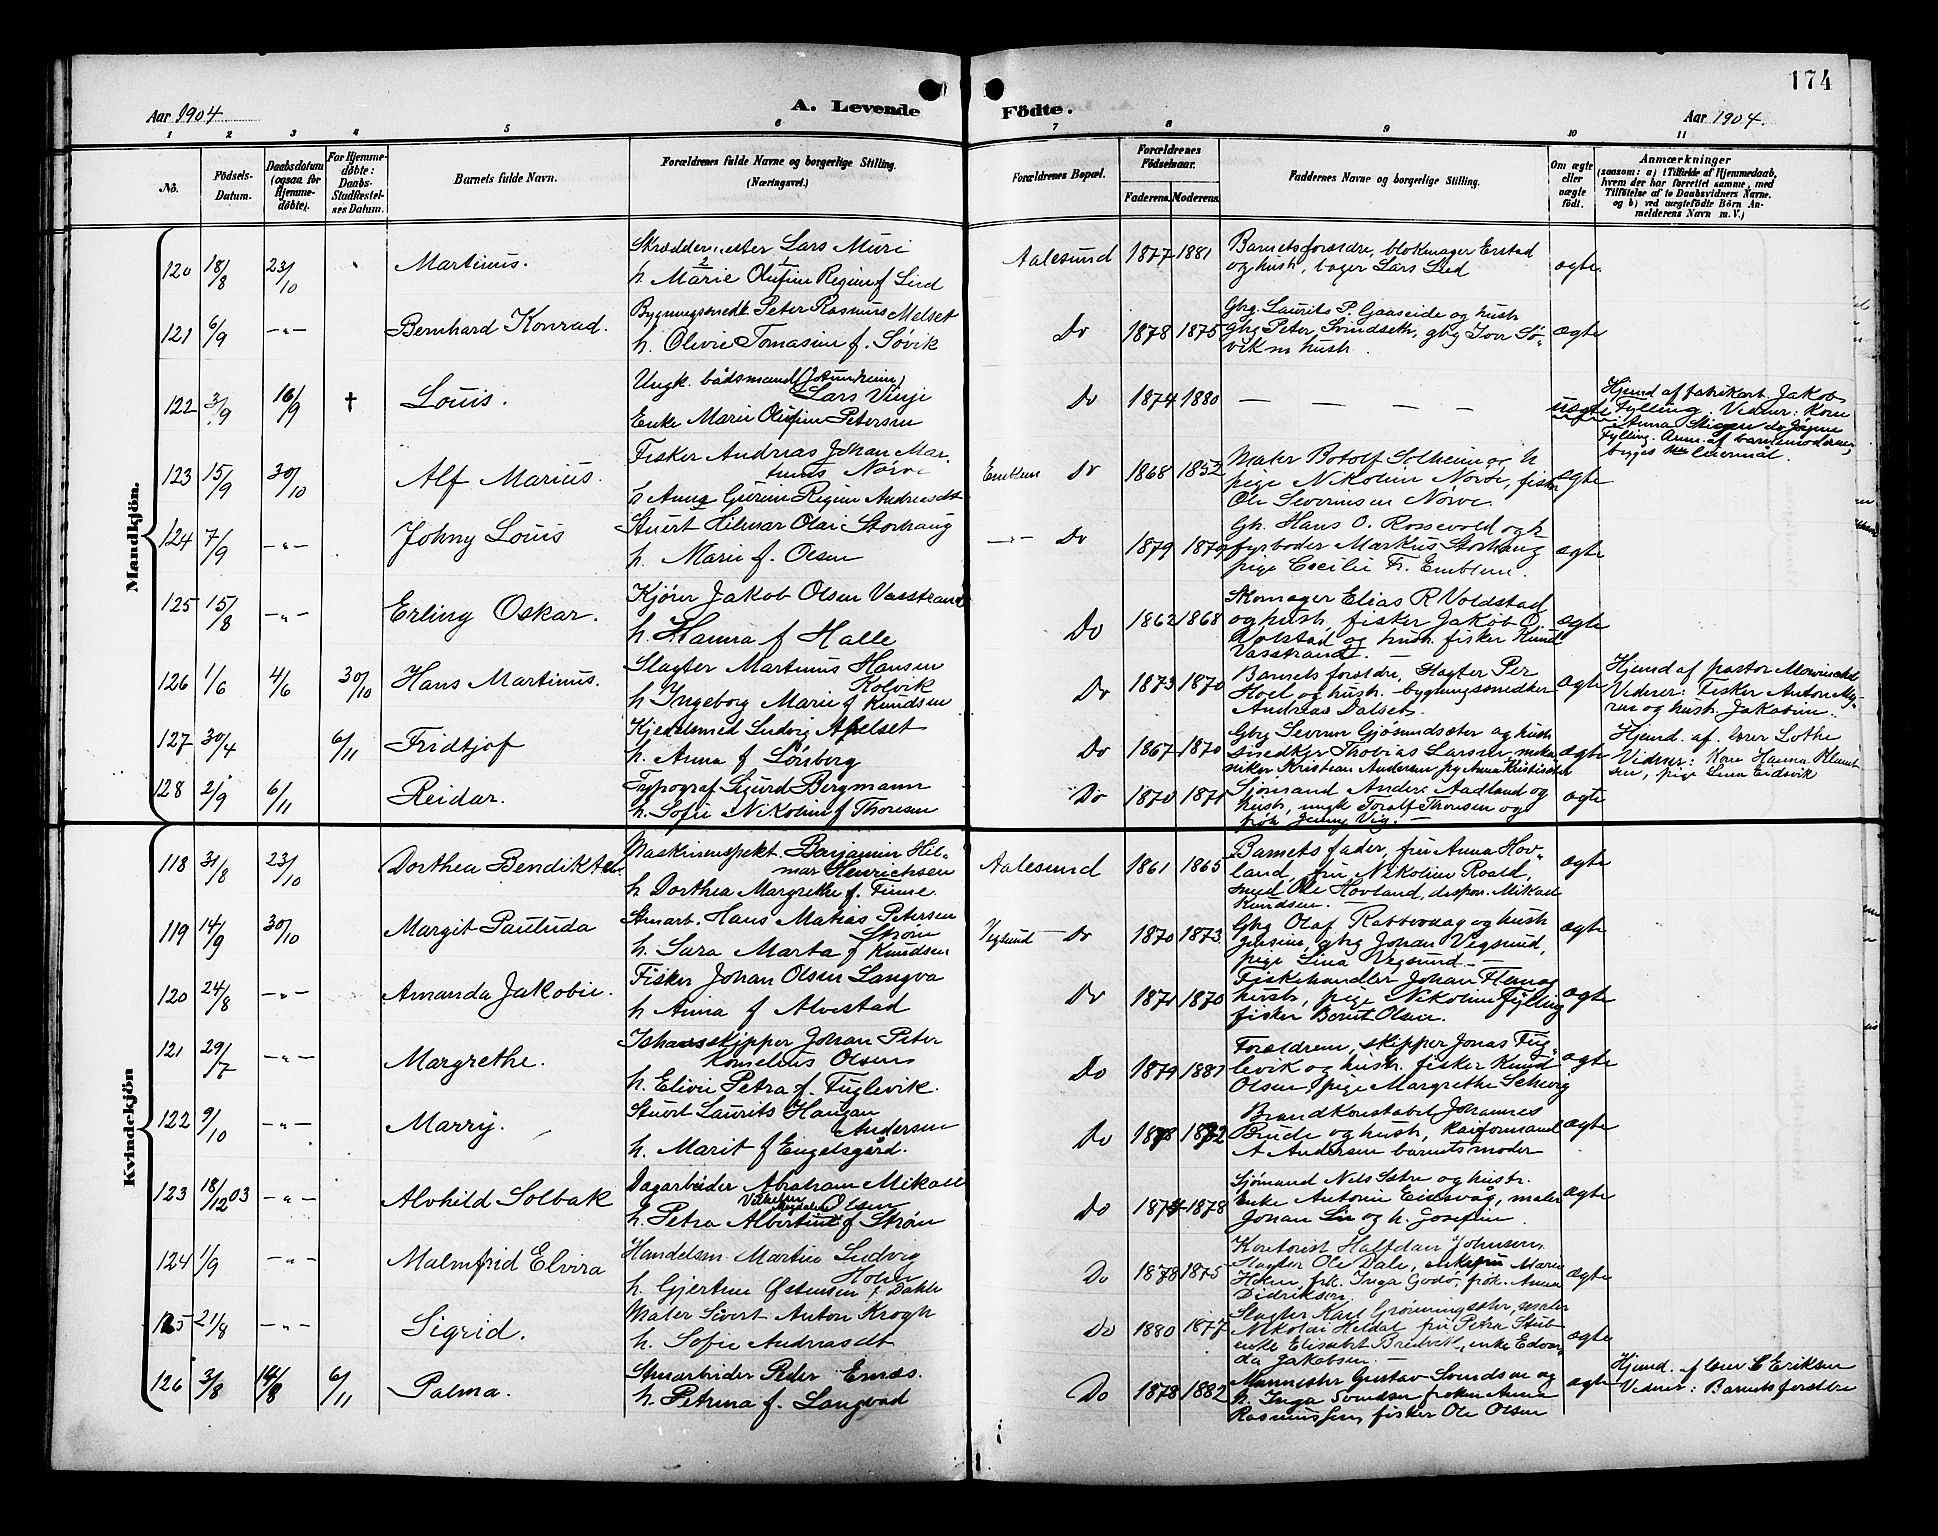 174
Aar 1904. A. Levende Födte. Aar 1904.
1 2 3 4 5 6 7 8 9 10 11
No. Födsels-Datum. Daabsdatum (ogsaa for Hjemmedöbte). For Hjemmedöbte: Daabs-Stadfæstelses Datum. Barnets fulde Navn. Forældrenes fulde Navne og borgerlige Stilling. (Næringsvei.) Forældrenes Bopæl. Forældrenes Födselsaar. Faderens. Moderens. Faddernes Navne og borgerlige Stilling. Om ægte eller uægte födt. Anmærkninger (saasom: a) i Tilfælde af Hjemmedaab, hvem der har forrettet samme, med Tilföielse af to Daabsvidners Navne, og b) ved uægtefödte Börn Anmelderens Navn m. V.)
Mandkjön.
120 18/8 23/10 Martinus. Lars Muri
h. Marie Olufine Regine f Lied
Aalesund 1877 1881 Barnets forældre, blokmager Erstad
og hustr, bager Lars Lied ægte
121 6/9 -"- Bernhard Konrad. Bygningssnedk Peter Rasmus Melset
h. Olivie Tomasine f. Søvik
Do 1878 1875 Gbrg. Laurits P. Gaaseide og hustr
gbrg Peter Svindseth, gbrg Iver Sø-
vik m hustr. ægte
122 3/9 16/9 † Louis. Ungk. bådsmand (Jotunheim)
Lars Vinje
Enke Marie Olufine Petersen
Do 1874 1880 — — — — uægte
Hjemd af fabrikarb Jakob
Fylling. Vidner: Kone
Anna do Jørgine
Fylling. Anm. af barnemoderen,
123 15/9 30/10 Alf Marius. Fisker Andreas Johan Mar-
tinus Nørve
h Anna Gurine Regine Andreasdt
Emblem Do 1868 1852 Maler Botolf Solheim og h
pige Nikoline Nørve, fisker
Ole Severinsen Nørve. ægte
124 7/9 -"- Johny Louis Stuert Hilmar Olai Storhaug
h. Marie f. Olsen
-"- Do 1879 1879 Gb. Hans O. Rossevold og h
fyrbøder Markus Storhaug
pige Cecilie Fr. Emblem. ægte
125 15/8 -"- Erling Oskar. Kjører Jakob Olsen Vasstrand
h. Hanna f Halle
Do 1862 1868 Skomager Elias R Voldstad
og hustr, fisker Jakob O.
Volstad og hustr fisker Knud
Vasstrand. ægte
126 1/6 4/6 30/10 Hans Martinus. Slagter Martinus Hansen
Kolvik
h Ingeborg Marie f Knudsen
Do 1873 1870 Barnets forældre, slagter Per
Hoel og hustr. bygningssnedker
Andreas Dalset. ægte
Hjemd af pastor
Vidner: Fisker Anton My-
ren og hustr Jakobine.
127 30/4 6/11 Fridtjof Kjedelsmed Ludvig Apelset
h. Anna f Lønberg
Do 1867 1870 Gbrg Severin Gjøsundsæter og hustr
snedker Thobias Larsen meka-
niker Kristian Andersen pg Anna ægte
Hjemd. af. lærer Lothe
Vidner: Kone Hanna
sen, pige Lina Eidsvik
128 2/9 6/11 Reidar. Typograf Sigurd Bergmann
h. Sofie Nikoline f Thoresen
Do 1870 1871 Sjømand Anders Aadland og
hustr, ungk Toralf Thoresen og
frøk Jenny Vig. ægte
Kvindekjön
118 31/8 23/10 Dorthea Bendikte Maskininspekt. Benjamin Hil-
mar Henrichsen
h Dorthea Margrethe f. Finne.
Aalesund 1861 1865 Barnets fader, fru Anna Hov-
land, fru Nikoline Roald,
smed Ole Hovland, dispon. Mikael
Knudsen. ægte
119 14/9 30/10 Margit Pauluda Stuarb. Hans Matias Petersen
Strøm
h. Sara Marta f Knudsen
Vegsund Do 1870 1873 Gbrg Olaf Rabbevaag og hustr
Jensine, gbrg Johan Vegsund,
pige Lina Vegsund. ægte
120 24/8 -"- Amanda Jakobie. Fisker Johan Olsen Langva
h Anna f Alvestad
Do 1871 1870 Fiskehandler Johan Flem og
hustr, pige Nikoline Fylling
fisker Bernt Olsen. ægte
121 29/7 -"- Margrethe. skipper Johan Peter
Kornelius Olsen
h. Elivie Petra f. Fuglevik.
Do 1879 1881 Forældrene, skipper Jonas Fug-
levik og hustr. fisker Knud
Olsen, pige Margrethe ægte
122 9/10 -"- Marry. Stuert Laurits Hansen
Andersen
h. Marit f Engelsgård.
Do 1878 1872 Brandkonstabel Johannes
Brude og hustr, kaiformand
A Andersen barnets moder ægte
123 18/12 03 -"- Alvhild Solbak Dagarbeider Abraham Mikael
Vilhelm Olsen
h. Petra Albertine Magdalene f Strøm
Do 1874 1878 Sjømand Nils Sætre og hustr.
Enke Antonie Eidsvåg, maler
Johan Lie og h. Josefine. ægte
124 1/9 -"- Malmfrid Elvira Handelsm. Martin Ludvig
Holen
h. Gjertine Østensen f Dahle
Do 1878 1875 Kontorist Halfdan Johnsen,
slagter Ole Dale, enkefru Marie
Holen, frk. Inga Godø, frøk. Anna
Didriksen. ægte
125 21/8 -"- Sigrid. Maler Sivert Anton Krogh
h. Sofie Andreasdt
Do 1880 1877 Slagter Karl Grønningsæter, maler
Nikolai Heldal fru Petra
enke Elisabet Bredvik, enke Edvar-
da Jakobsen. ægte
126 3/8 14/8 6/11 Palma. Stuarbeider Peder Ernæs.
h. Petrina f. Langvad
Do 1878 1882 Gustav Svendsen og
h. Inga Svendsen frøken Anna
Rasmussen, fisker Ole Olsen ægte
Hjemd. af lærer C Eriksen
Vidner: Barnets forældre